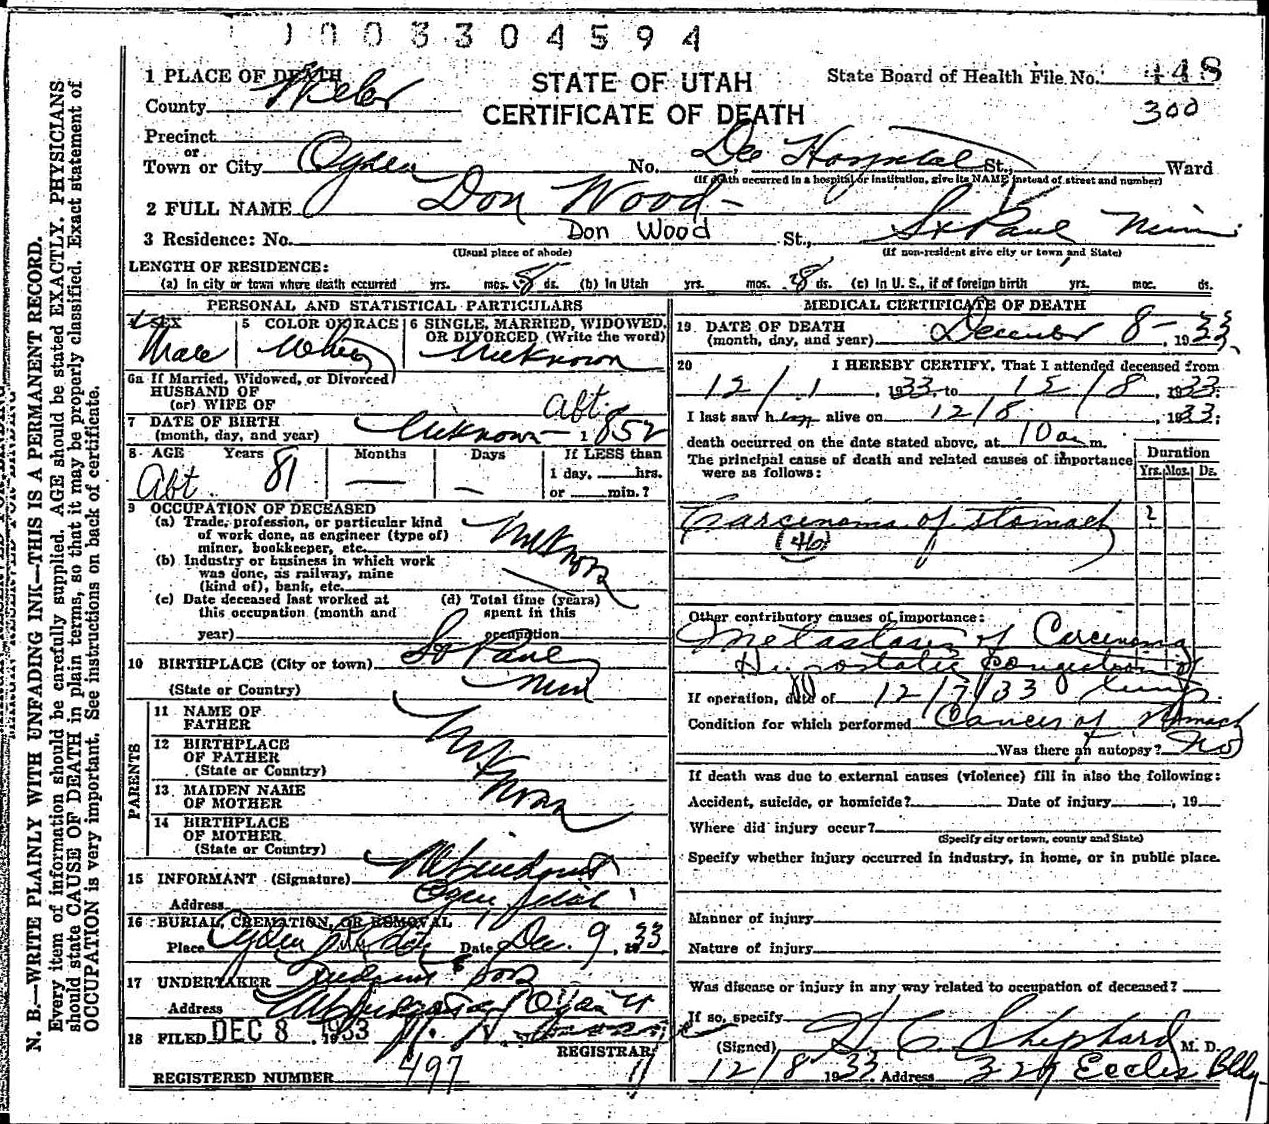 1003304594
STATE OF UTAH
CERTIFICATE OF DEATH
State Board of Health File No. 448
300
1 PLACE OF DEATH
County Weber
Precinct
or
Town or City Ogden No. Dee Hospital St., Ward
(If death occurred in a hospital or institution, give its NAME instead of street and number)
2 FULL NAME Don Wood
Don Wood
3 Residence: No. St., St Paul Minn
(Usual place of abode) (If non-resident give city or town, and State)
LENGTH OF RESIDENCE:
(a) In city or town where death occurred yrs. mos. 8 ds. (b) In Utah yrs. mos. 8 ds. (c) In U. S., if of foreign birth yrs. mos. ds.
PERSONAL AND STATISTICAL PARTICULARS
4 SEX Male
5 COLOR OR RACE White
6 SINGLE, MARRIED, WIDOWED, OR DIVORCED (Write the word) Unknown
6a If Married, Widowed, or Divorced
HUSBAND OF
(or) WIFE OF
7 DATE OF BIRTH
(month, day, and year) Unknown abt. 1852
8 AGE Years Months Days If LESS than
Abt. 81 — — 1 day, hrs.
or min.?
9 OCCUPATION OF DECEASED
(a) Trade, profession, or particular kind
of work done, as engineer (type of)
miner, bookkeeper, etc. Unknown
(b) Industry or business in which work
was done, as railway, mine
(kind of), bank, etc.
(c) Date deceased last worked at
this occupation (month and
year)
(d) Total time (years)
spent in this
occupation
10 BIRTHPLACE (City or town) St Paul
(State or Country) Minn
PARENTS
11 NAME OF
FATHER
12 BIRTHPLACE
OF FATHER
(State or Country)
Unknown
13 MAIDEN NAME
OF MOTHER
14 BIRTHPLACE
OF MOTHER
(State or Country)
15 INFORMANT (Signature) Lindquist
Address Ogden Utah
16 BURIAL, CREMATION, OR REMOVAL
Place Ogden Date Dec. 9, 1933
17 UNDERTAKER Lindquist & Sons
Address Ogden U
18 FILED DEC 8 1933
REGISTRAR
REGISTERED NUMBER 497 11
MEDICAL CERTIFICATE OF DEATH
19 DATE OF DEATH
(month, day, and year) December 8 - , 1933
20 I HEREBY CERTIFY, That I attended deceased from
12/1, 1933 to 12/8, 1933;
I last saw him alive on 12/8, 1933;
death occurred on the date stated above, at 10 a m.
The principal cause of death and related causes of importance
were as follows:
Duration
Yrs. Mos. Ds.
Carcinoma of stomach 2
(46)
Other contributory causes of importance:
Metastasis of Carcinoma
Hypostatic congestion of
lungs
If operation, date of 12/7/33
Condition for which performed Cancer of Stomach
Was there an autopsy? No
If death was due to external causes (violence) fill in also the following:
Accident, suicide, or homicide? Date of injury , 19
Where did injury occur?
(Specify city or town, county and State)
Specify whether injury occurred in industry, in home, or in public place.
Manner of injury
Nature of injury
Was disease or injury in any way related to occupation of deceased?
If so, specify
(Signed) H C Shephard M. D.
12/8 1933. Address 329 Eccles Bldg
N. B.—WRITE PLAINLY WITH UNFADING INK—THIS IS A PERMANENT RECORD.
Every item of information should be carefully supplied. AGE should be stated EXACTLY. PHYSICIANS
should state CAUSE OF DEATH in plain terms, so that it may be properly classified. Exact statement of
OCCUPATION is very important. See instructions on back of certificate.